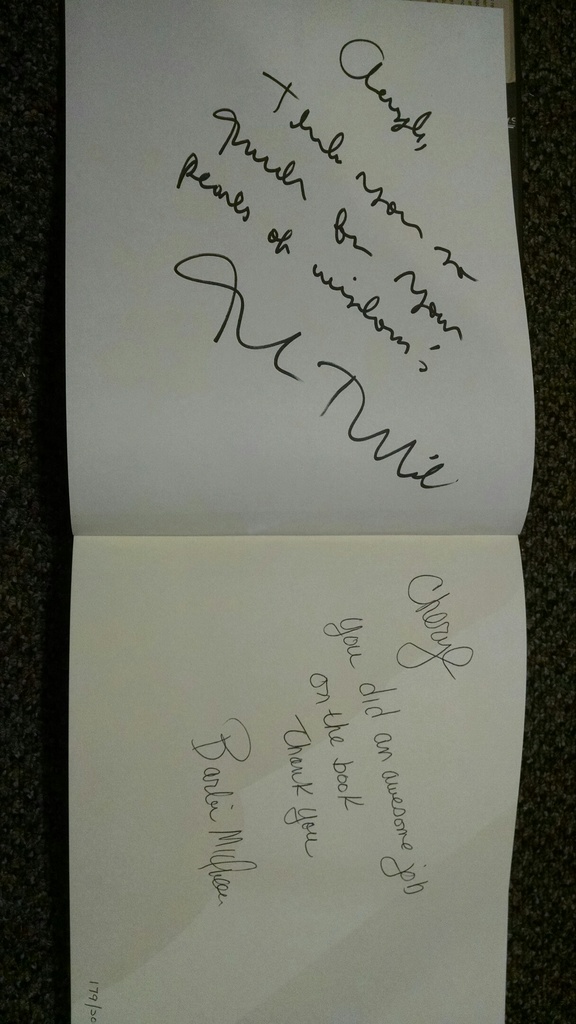 Cheryl,
Thank you so
much for your
pearls of wisdom's
Cheryl
you did an awesome job
on the book
Thank you
Barbi McQueen
179/20